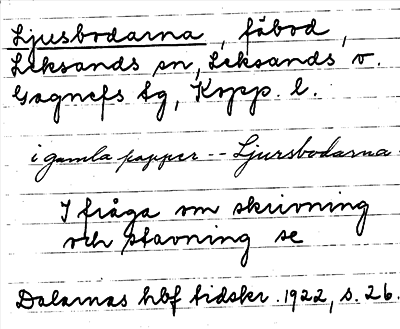 Ljusbodarna, fäbod,
Leksands sn, Leksands o.
Gagnefs tg, Kopp. l.
i gamla papper -- Ljursbodarna
I fråga om skrivning
och stavning se
Dalarnas hbf tidskr. 1922, s. 26.